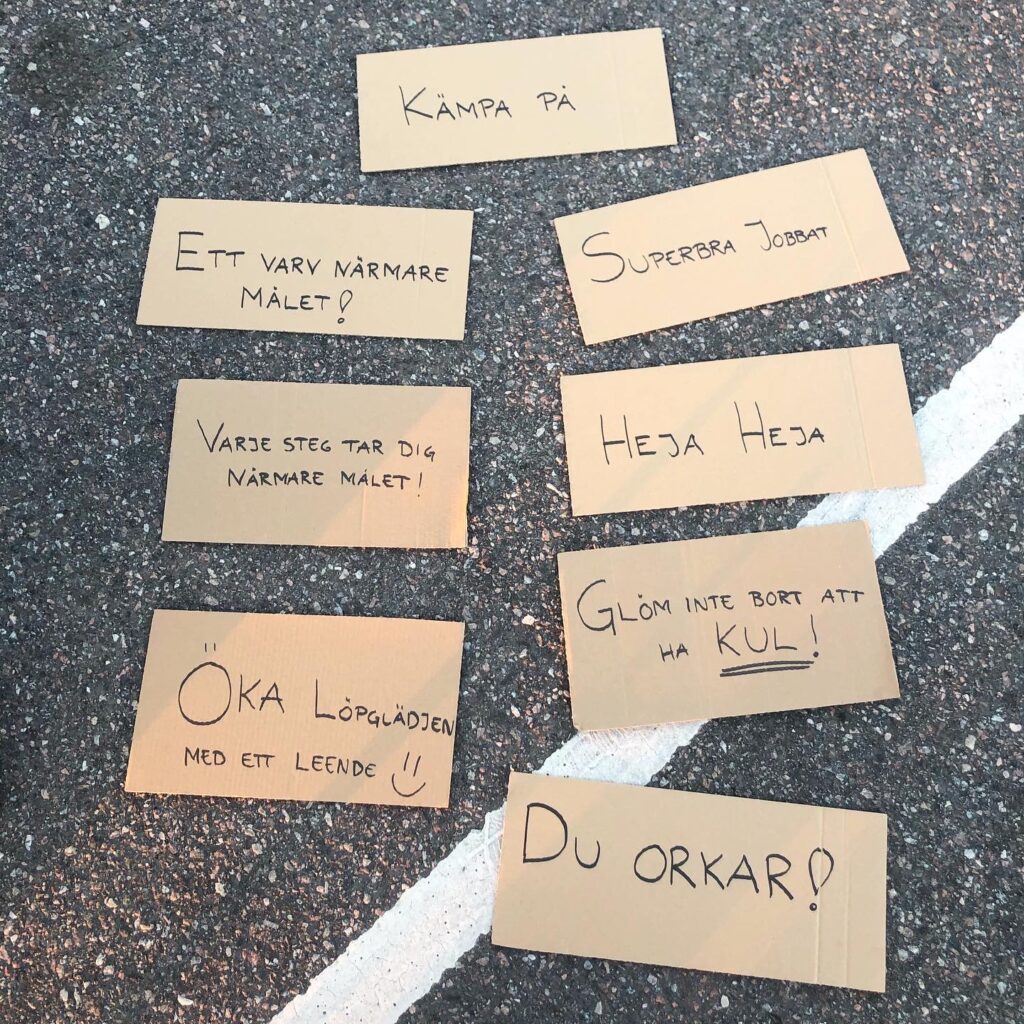 KÄMPA PÅ
ETT VARV NÄRMARE
MÅLET!
SUPERBRA JOBBAT
VARJE STEG TAR DIG
NÄRMARE MÅLET!
HEJA HEJA
GLÖM INTE BORT ATT
HA KUL!
ÖKA LÖPGLÄDJEN
MED ETT LEENDE
DU ORKAR!